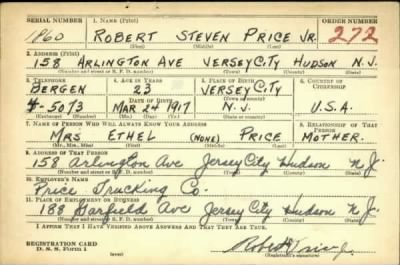 SERIAL NUMBER 1. NAME (Print) ORDER NUMBER
1860 ROBERT STEVEN PRICE JR. 272
(First) (Middle) (Last)
2. ADDRESS (Print)
158 ARLINGTON AVE JERSEY CITY HUDSON N.J.
(Number and street or R. F. D. number) (Town) (County) (State)
3. TELEPHONE 4. AGE IN YEARS 5. PLACE OF BIRTH 6. COUNTRY OF CITIZENSHIP
BERGEN 23 JERSEY CITY
DATE OF BIRTH (Town or county)
4-5073 MAR 24 1917 N.J. U.S.A.
(Exchange) (Number) (Mo.) (Day) (Yr.) (State or country)
7. NAME OF PERSON WHO WILL ALWAYS KNOW YOUR ADDRESS 8. RELATIONSHIP OF THAT PERSON
MRS ETHEL (NONE) PRICE MOTHER.
(Mr., Mrs., Miss) (First) (Middle) (Last)
9. ADDRESS OF THAT PERSON
158 Arlington Ave Jersey City Hudson N.J.
(Number and street or R. F. D. number) (Town) (County) (State)
10. EMPLOYER'S NAME
Price Trucking Co.
11. PLACE OF EMPLOYMENT OR BUSINESS
188 Garfield Ave Jersey City Hudson N.J.
(Number and street or R. F. D. number) (Town) (County) (State)
I AFFIRM THAT I HAVE VERIFIED ABOVE ANSWERS AND THAT THEY ARE TRUE.
REGISTRATION CARD
D. S. S. Form 1
Robert Price Jr.
(Registrant's signature)